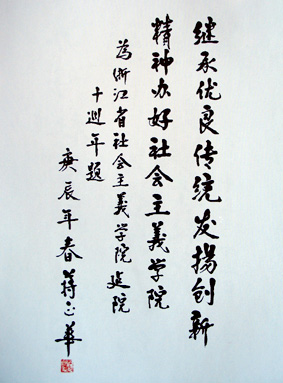 继承优良传统发扬创新
精神办好社会主义学院
为浙江省社会主义学院建院
十週年题
庚辰年春蒋正华